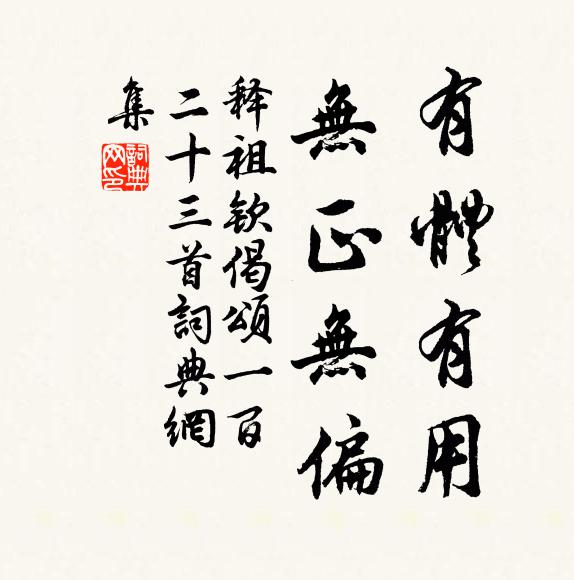 有體有用
無正無偏
释祖欽偈頌一百
二十三首詞典網
集
詞典
网印